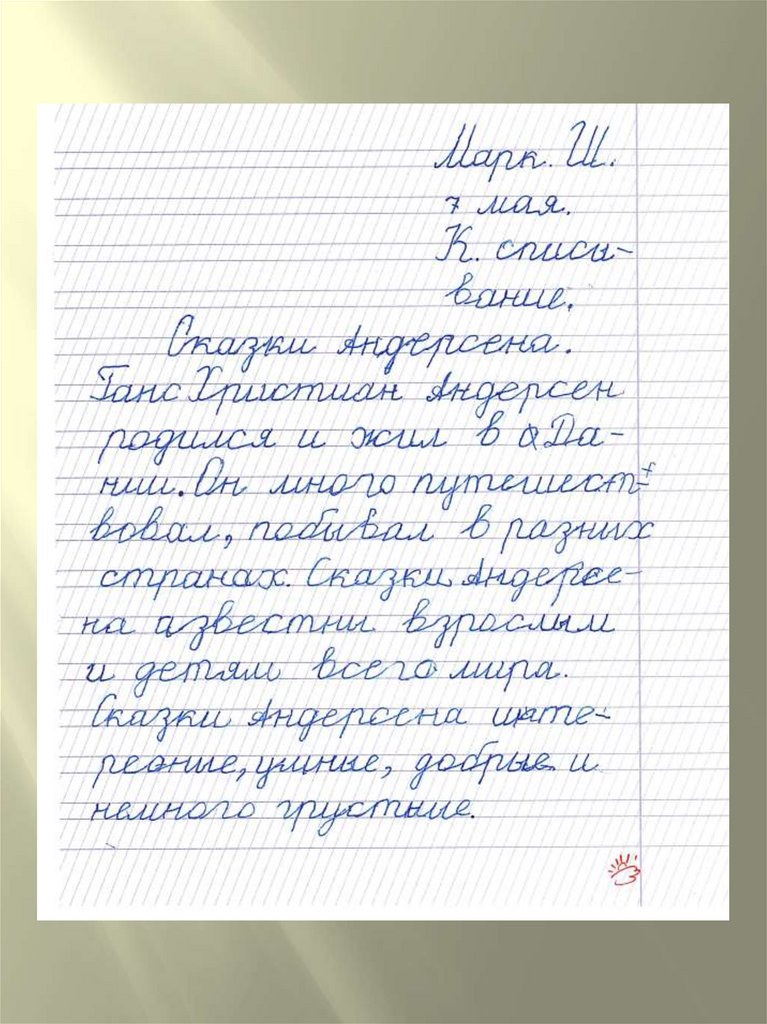 Марк. Ш.
7 мая.
К. списы-
вание.
Сказки Андерсена.
Ганс Христиан Андерсен
родился и жил в Да-
нии. Он много путешест-
вовал, побывал в разных
странах. Сказки Андерсе-
на известны взрослым
и детям всего мира.
Сказки Андерсена инте-
ресные, умные, добрые и
немного грустные.